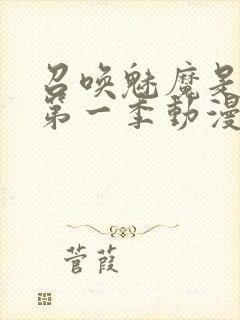 召唤魅魔是
第一季動漫
菅葭